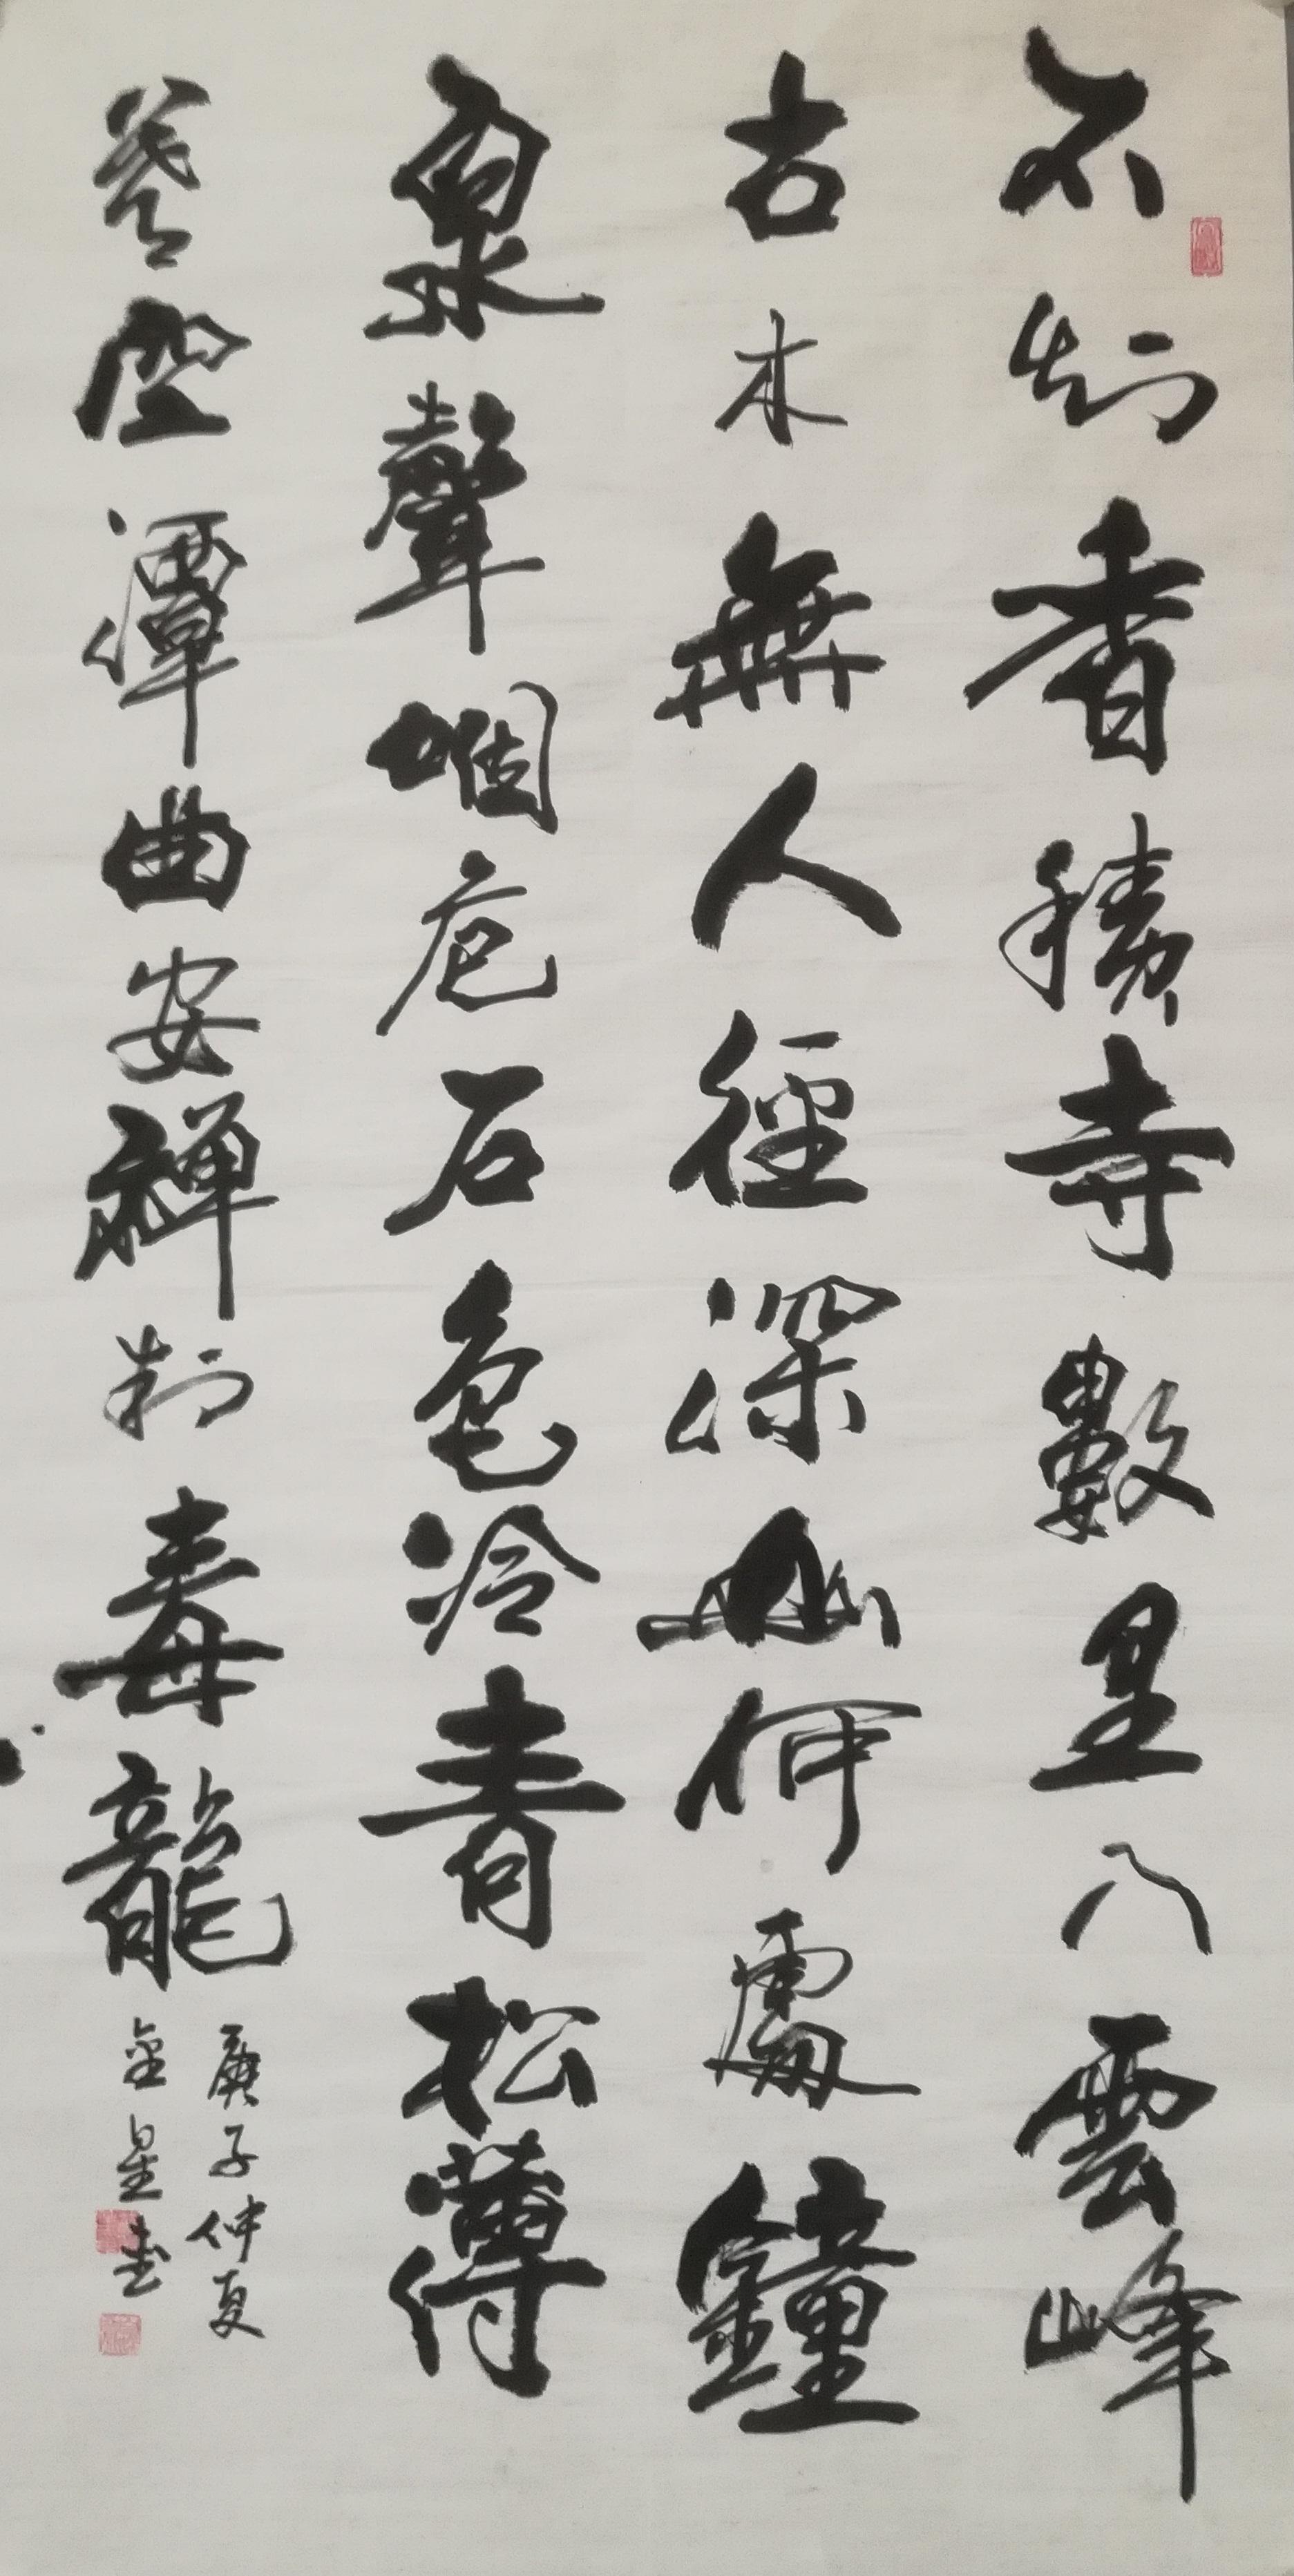 不知香積寺數里入雲峰
古木無人徑深山何處鐘
泉聲咽危石色冷青松薄
暮空潭曲安禪制毒龍
庚子仲夏
金星書